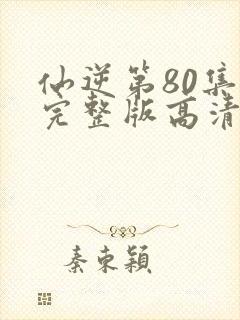 仙逆第80集
完整版高清
秦束颖